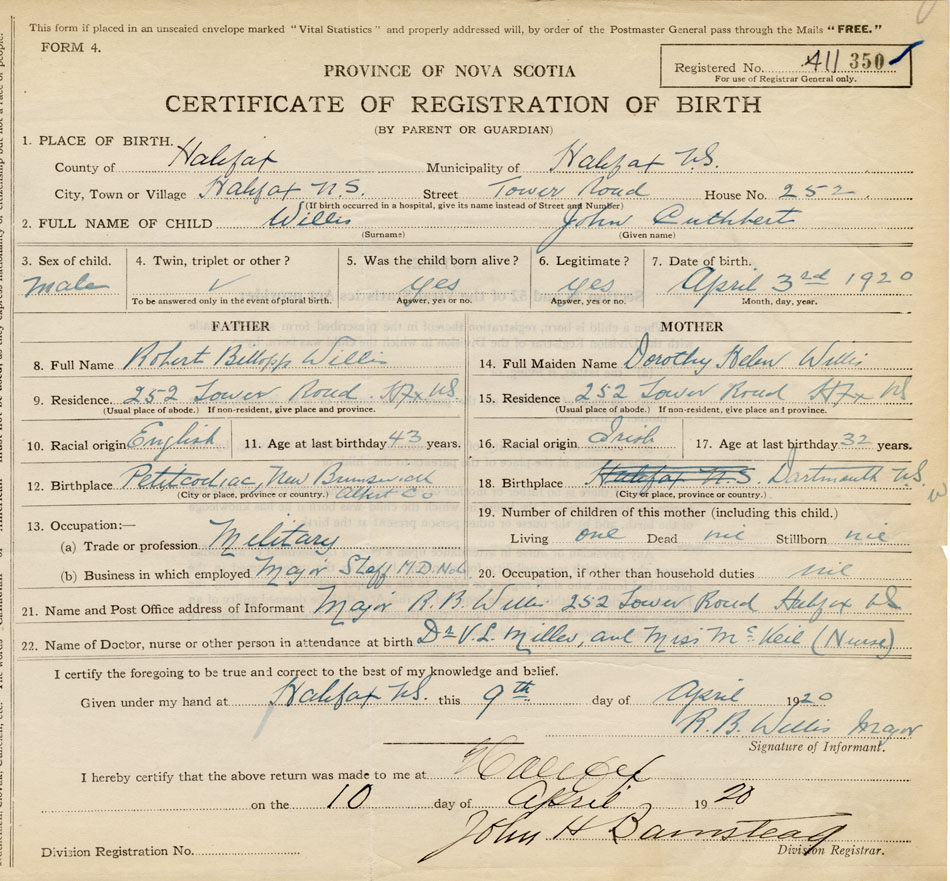 This form if placed in an unsealed envelope marked "Vital Statistics" and properly addressed will, by order of the Postmaster General pass through the Mails "FREE."
FORM 4.
Registered No. 411 350
For use of Registrar General only.
PROVINCE OF NOVA SCOTIA
CERTIFICATE OF REGISTRATION OF BIRTH
(BY PARENT OR GUARDIAN)
1. PLACE OF BIRTH.
County of Halifax Municipality of Halifax N.S.
City, Town or Village Halifax N.S. Street Tower Road House No. 252
(If birth occurred in a hospital, give its name instead of Street and Number)
2. FULL NAME OF CHILD Willis John Cuthbert
(Surname) (Given name)
3. Sex of child. 4. Twin, triplet or other? 5. Was the child born alive? 6. Legitimate? 7. Date of birth.
Male yes yes April 3rd 1920
To be answered only in the event of plural birth. Answer, yes or no. Answer, yes or no. Month, day, year.
FATHER MOTHER
8. Full Name Robert Willis 14. Full Maiden Name Dorothy Helen Willis
9. Residence. 252 Tower Road Hfx NS 15. Residence 252 Tower Road Hfx NS
(Usual place of abode.) If non-resident, give place and province. (Usual place of abode.) If non-resident, give place and province.
10. Racial origin English 11. Age at last birthday 43 years. 16. Racial origin Irish 17. Age at last birthday 32 years.
12. Birthplace Petitcodiac, New Brunswick 18. Birthplace Halifax N.S. Dartmouth N.S.
(City or place, province or country.) Albert Co (City or place, province or country.)
19. Number of children of this mother (including this child.)
13. Occupation:—
(a) Trade or profession Military Living one Dead nil Stillborn nil
(b) Business in which employed Major Staff M.D. No 6 20. Occupation, if other than household duties nil
21. Name and Post Office address of Informant Major R.B. Willis 252 Tower Road Halifax NS
22. Name of Doctor, nurse or other person in attendance at birth Dr V.L. Miller, and Miss McKeil (Nurse)
I certify the foregoing to be true and correct to the best of my knowledge and belief.
Given under my hand at Halifax N.S. this 9th day of April 1920
R.B. Willis Major
Signature of Informant.
I hereby certify that the above return was made to me at Halifax
on the 10 day of April 1920
John H Barnstead
Division Registration No. Division Registrar.